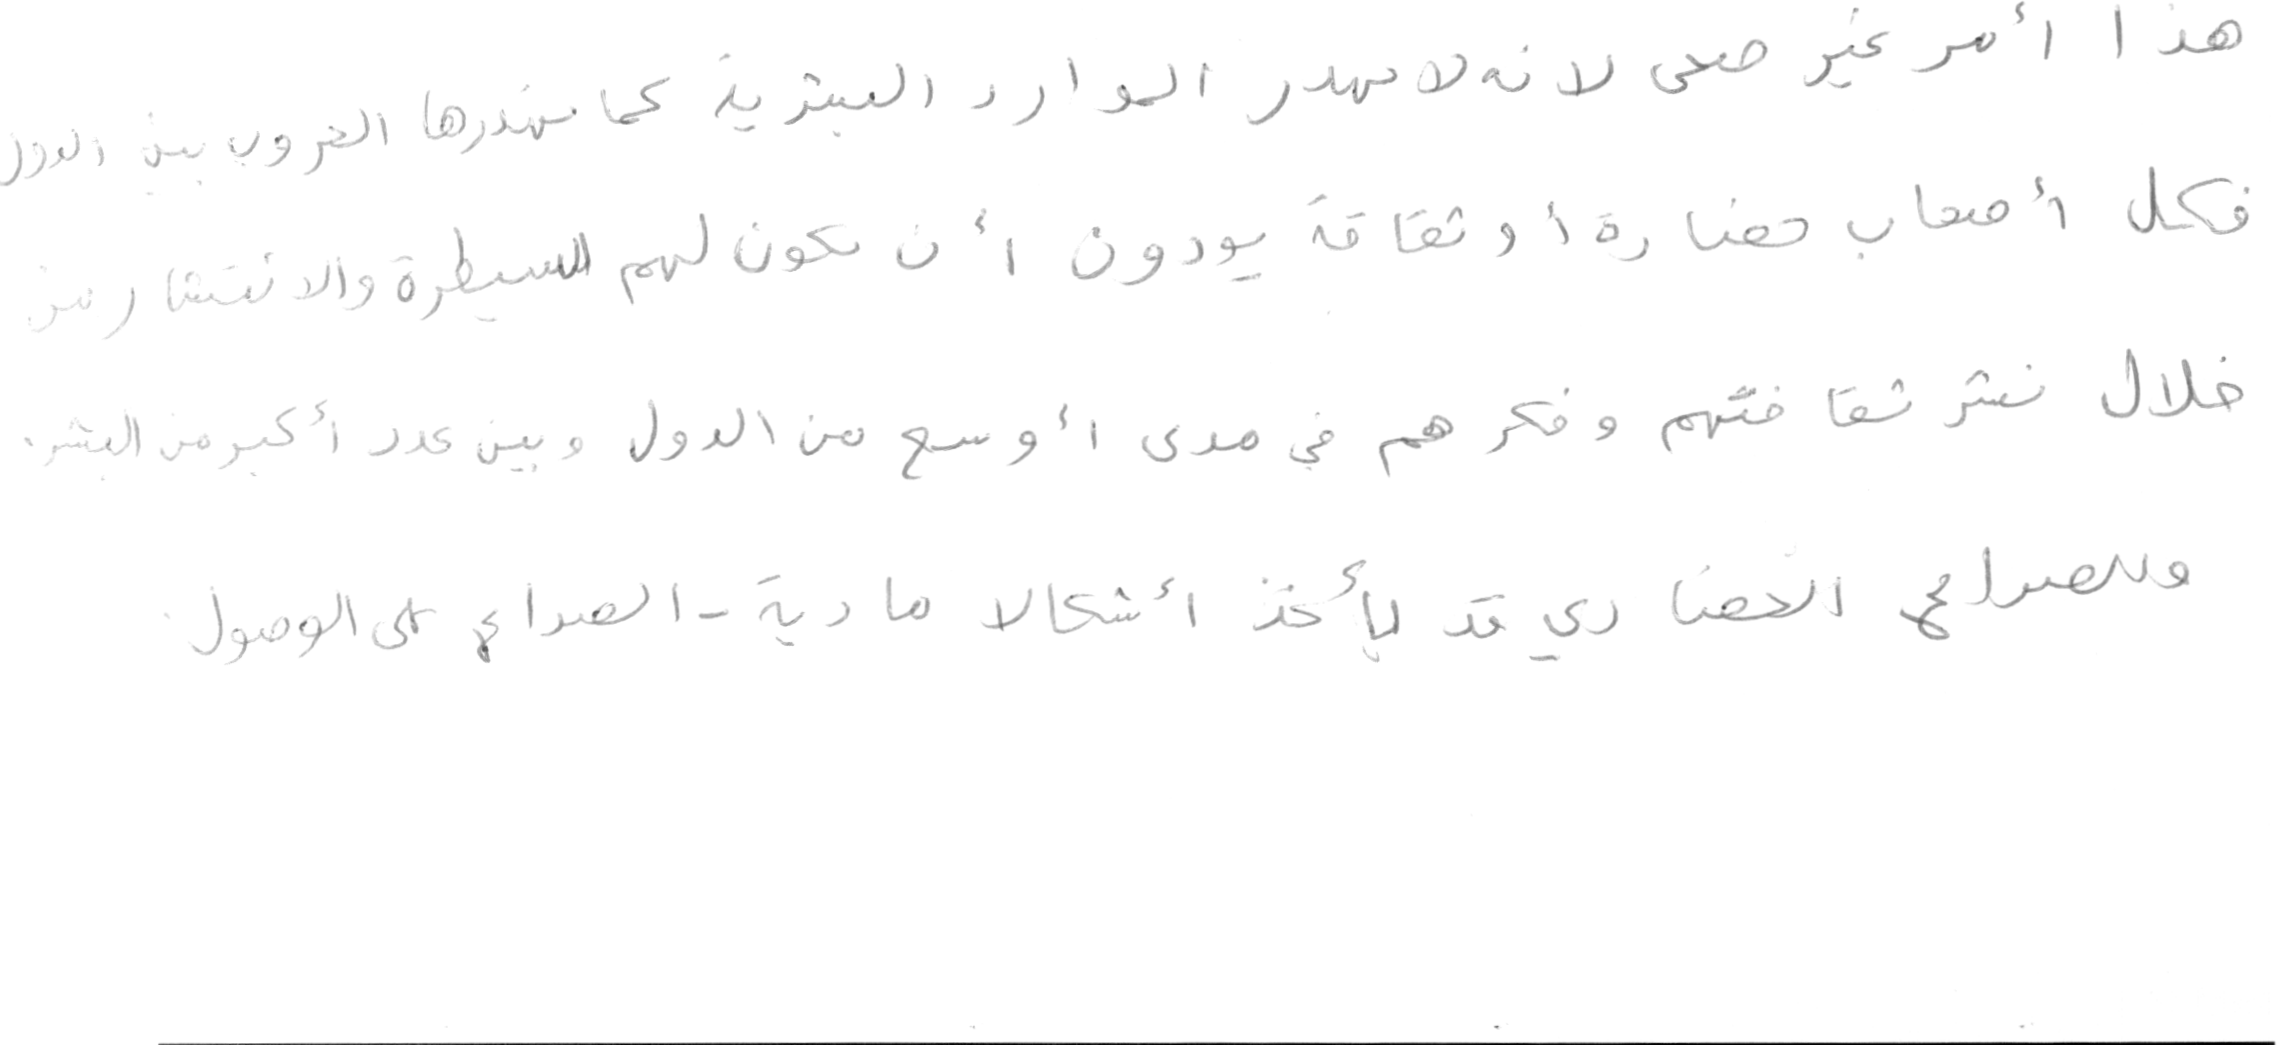 هذا أمر غير صحى لانه لا يهدر الموارد البشرية كما تهدرها الحروب بين الدول
فكل أصحاب حضارة أو ثقافة يودون أن تكون لهم السيطرة والانتشار من
خلال نشر ثقافتهم وفكرهم في مدى أوسع من الدول وبين عدد أكبر من البشر.
وللصراع الحضاري قد يأخذ أشكالا مادية - الصراع على الوصول